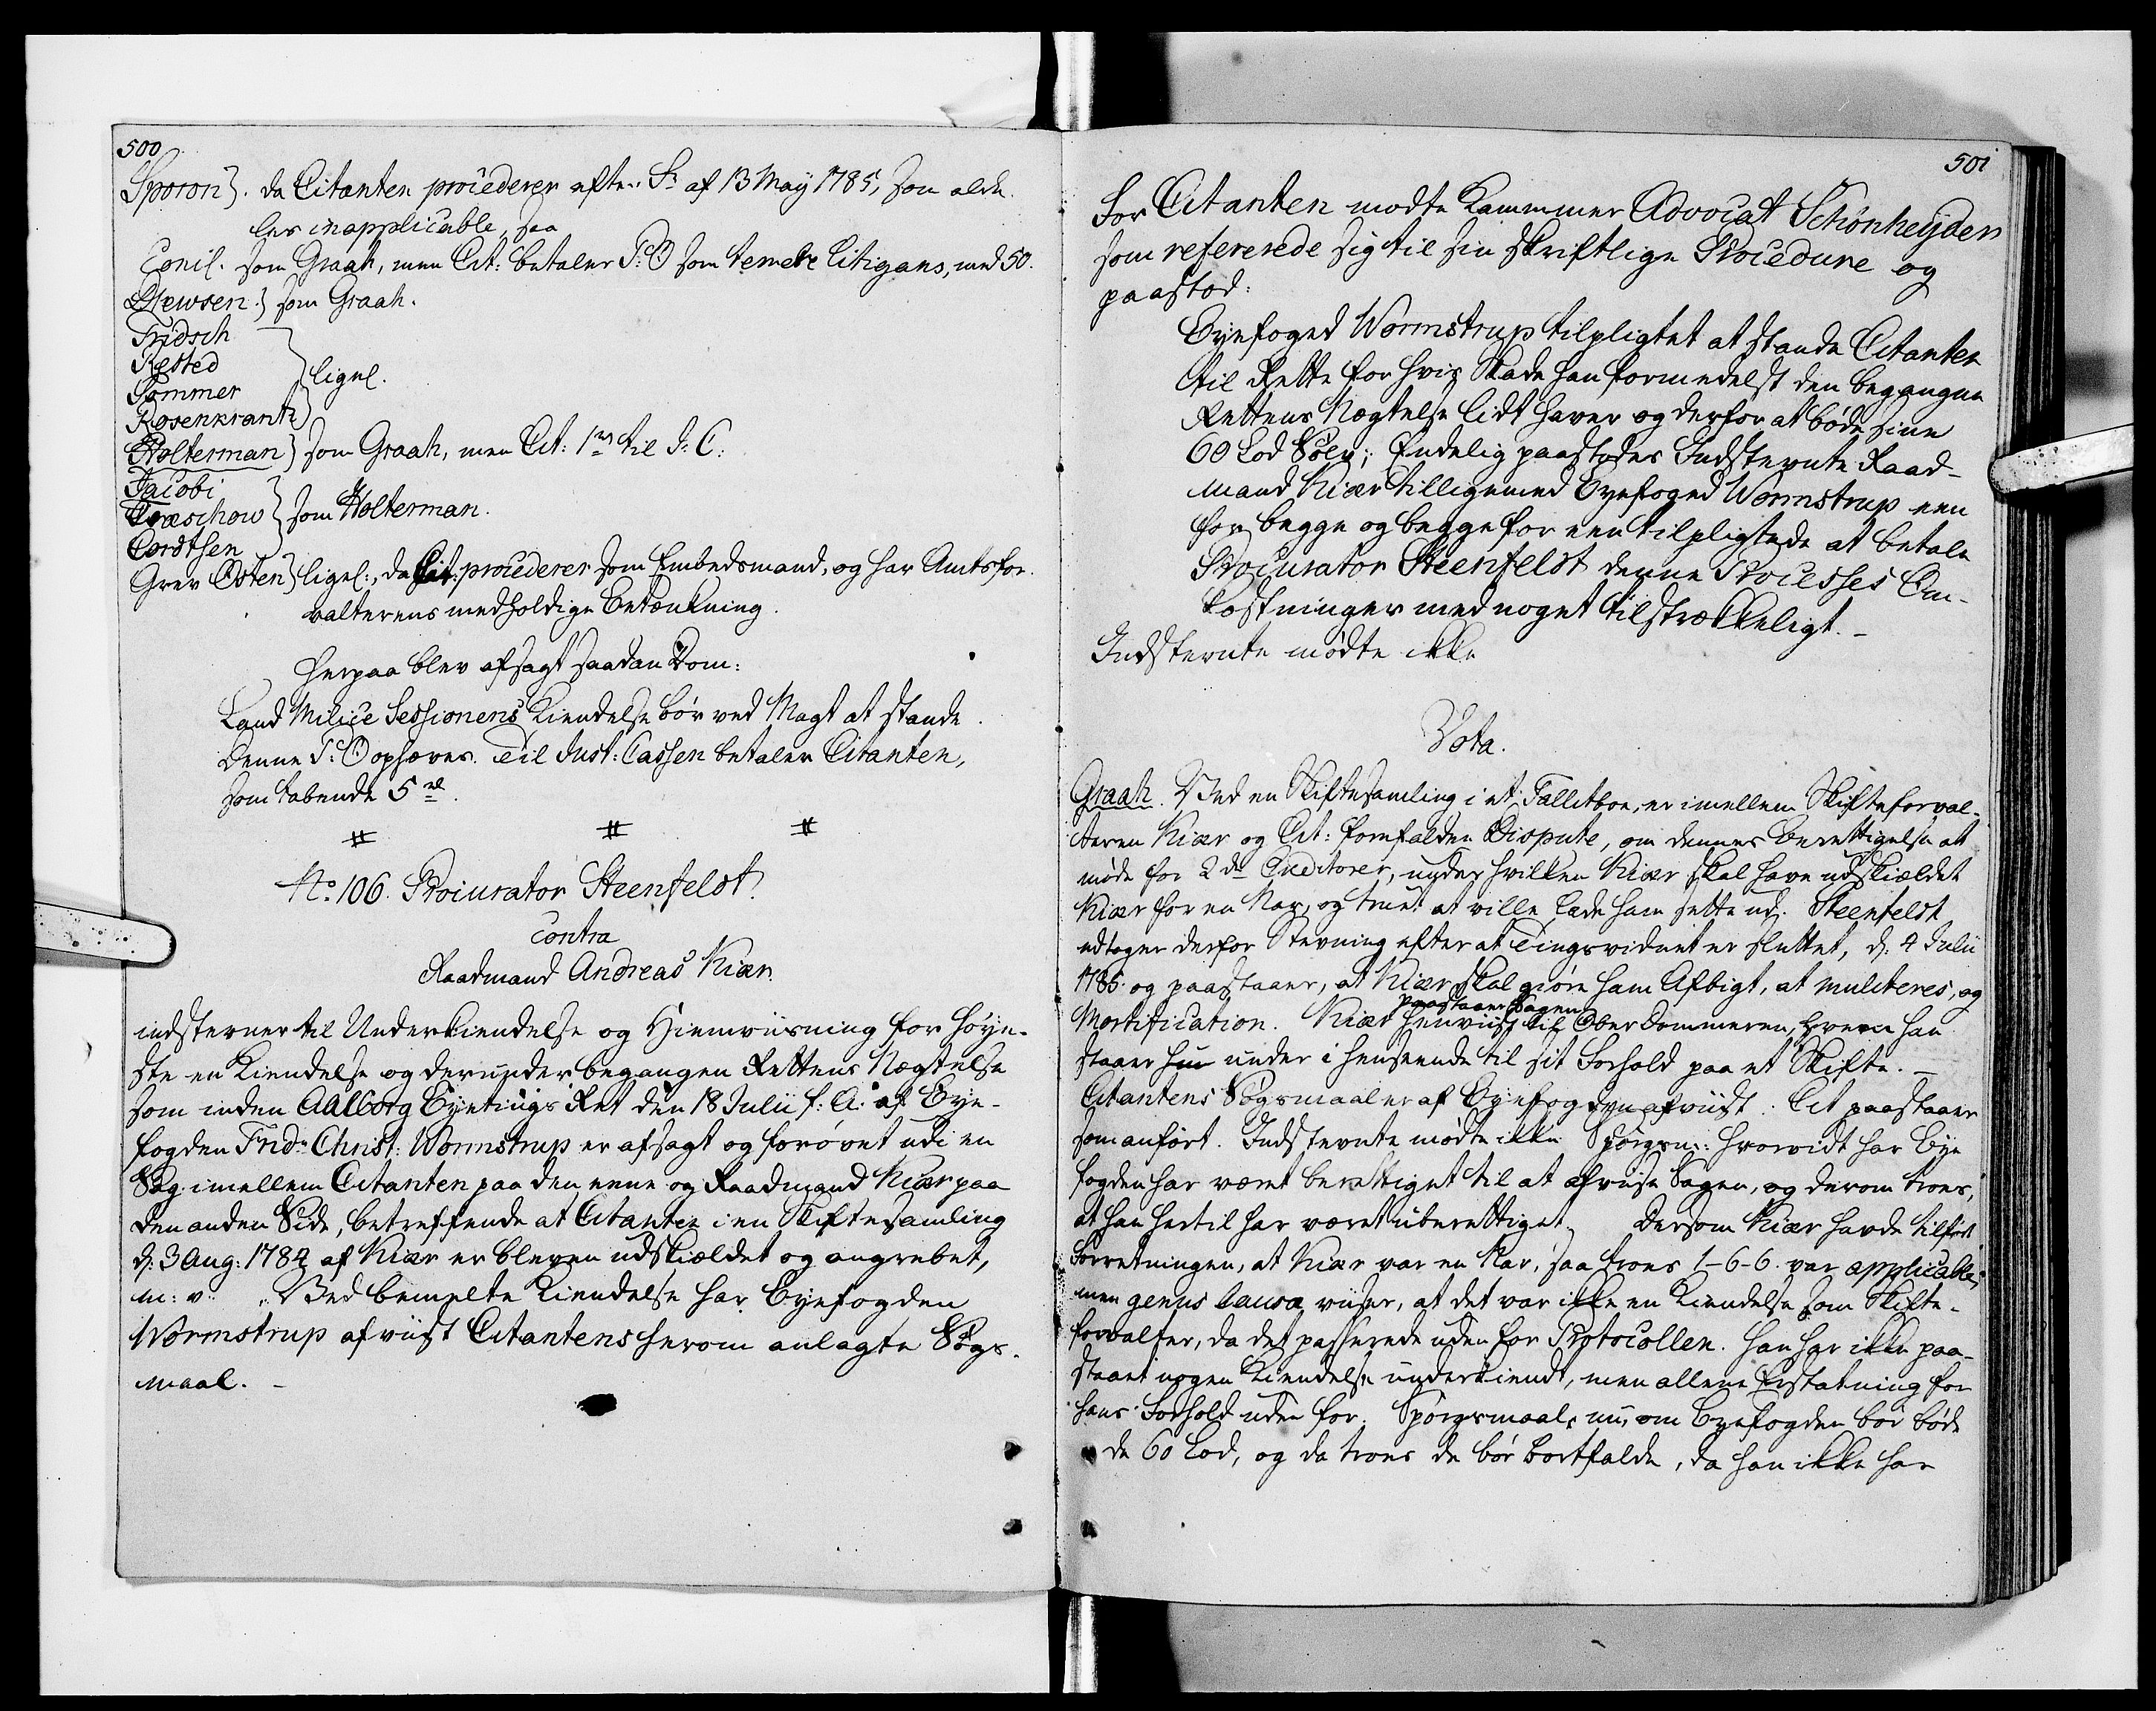 500
Sporon}. da Citanten procederer efter Fr af 13 May 1785, som alde
les inapplicable, saa
som Graah, men Cit: betaler P: O som temere litigans, med 50.
Stewsen.} som Graah.
Fridsch
Rested
Sommer
Rosenkrantz
} ligel.
Holterman} som Graah, men Cit: 1 rd til J: C:
Jacobi
Træschow } som Holterman.
Cordtsen
Grev Osten} ligel:, da Cit: procederer som Embedsmand, og har Amtsfor-
valterens medholdige Betænkning.
Herpaa blev afsagt saadan Dom:
Land Milice Sessionens Kiendelse bør ved Magt at stande.
Denne P: O ophæves. Til Just: Cassen betaler Citanten,
som tabende 5 rd.
No: 106. Procurator Steenfeldt.
contra
Raadmand Andreas Kiær.
indstevner til Underkiendelse og Hiemviisning for Høye-
ste en Kiendelse og derunder begangen Rettens Nægtelse
som inden Aalborg Byetings Ret den 18 Julii f: A: af Bye-
fogden Frid: Christ: Wormstrup er afsagt og forøvet udi en
Sag imellem Citanten paa den eene og Raadmand Kiær paa
den anden Side, betreffende at Citanten i en Skiftesamling
d: 3 Aug: 1784 af Kiær er bleven udskiældet og angrebet,
m: v: Ved bemelte Kiendelse har Byefogden
Wormstrup afviist Citantens herom anlagte Søgs-
maal. -
501
For Citanten mødte Kammer Advocat Schønheyder
som refererede sig til sin skriftlige Procedure og
paastod:
Byefoged Wormstrup tilpligtet at stande Citanten
til Rette for hvis Skade han formedelst den begangne
Rettens Nægtelse lidt haver og derfor at bøde sine
60 Lod Sølv; Endelig paastodes Indstevnte Raad-
mand Kiær tilligemed Byefoged Wormstrup een
for begge og begge for een tilpligtede at betale
Procurator Steenfeldt denne Processes Om-
kostninger med noget tilstrækkeligt. -
Indstevnte mødte ikke
Vota.
Graah. Ved en Skiftesamling i et Fallitboe, er imellem Skifteforval-
teren Kiær og Cit: forefalden Dispute, om dennes Berettigelse at
møde for 2de Creditorer, under hvilken Kiær skal have udskieldet
Kiær for en Nar, og truet at ville lade ham sette ud. Steenfeldt
udtager derfor Stevning efter at Tingsvidnet er sluttet, d: 4 Julii
1785. og paastaaer, at Kiær skal giøre ham Afbigt, at mulcteres, og
Mortification. Kiær paastaaer Sagen henviist til Overdommeren, hvem han
staaer under i henseende til sit Forhold paa et Skifte. -
Citantens Søgsmaal er af Byefogden afviist. Cit paastaaer
som anført. Indstevnte mødte ikke. Spørgsm: hvorvidt har Bye
fogden har været berettiget til at afviise Sagen, og derom troes,
at han hertil har været uberettiget. Dersom Kiær havde tilført
Forretningen, at Kiær var en Nar, saa troes 1-6-6. var applicable;
men genus causæ viiser, at det var ikke en Kiendelse som Skifte-
forvalter, da det passerede uden for Protocollen. Han har ikke paa-
staaet nogen Kiendelse underkiendt, men allene Erstatning for
hans Forhold uden for. Spørgsmaal nu, om Byefogden bør bøde
de 60 Lod, og da troes de bør bortfalde, da han ikke har